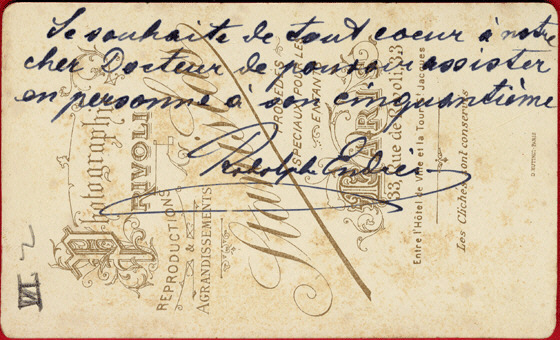 Je souhaite de tout coeur à notre
cher Docteur de pouvoir assister
en personne à son cinquantième
Rodolph
Photographie
RIVOLI
REPRODUCTIONS
&
AGRANDISSEMENTS
PROCÉDÉS
SPÉCIAUX POUR LES
ENFANTS
PARIS
33, rue de Rivoli, 33
Entre l'Hôtel de Ville et la Tour St Jacques
Les Clichés sont conservés
VI. 2